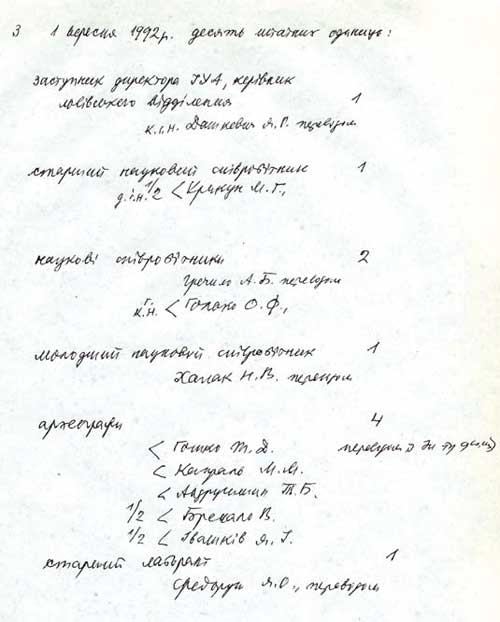 З 1 вересня 1992р. десять штатних одиниць:
заступник директора ІУА, керівник
львівського відділення 1
к.і.н. Дашкевич Я.Р. переводом
старший науковий співробітник 1
д.і.н. 1/2 < Крикун М.Г.,
наукові співробітники 2
Гречило А.Б. переводом
к.н. < Голько О.Ф.,
молодший науковий співробітник 1
Халак Н.В. переводом
археографи 4
< Гошко Т.Д. переводом
< Капраль М.М.
< Андрусишин Т.Б.
1/2 < Бремало В.
1/2 < Іваськів Я.І.
старший лаборант 1
Федорук Я.О., переводом